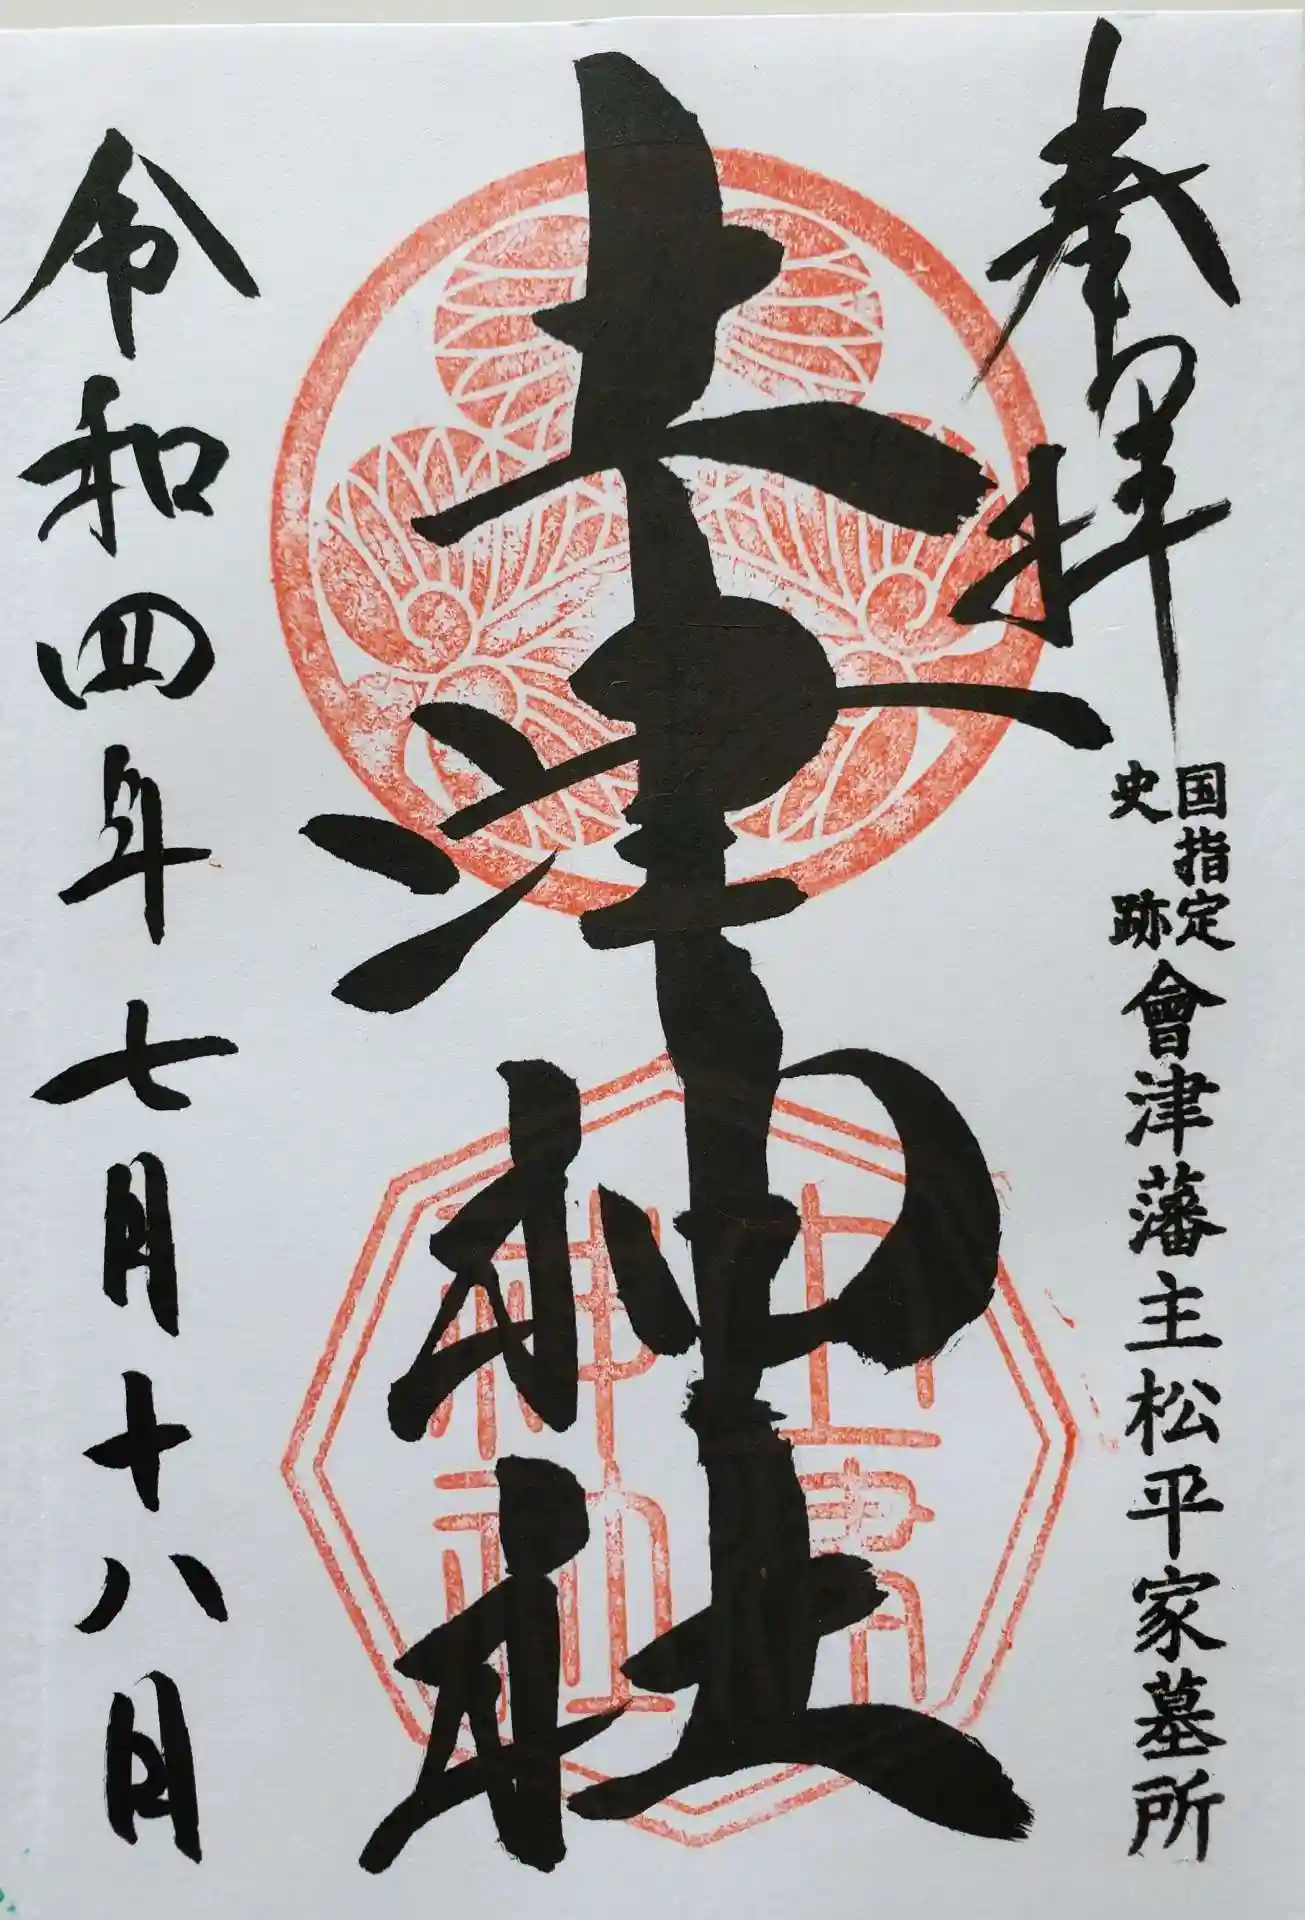 奉拝
国指定
史跡
會津藩主松平家墓所
土津神社
土津
神社
令和四年七月十八日